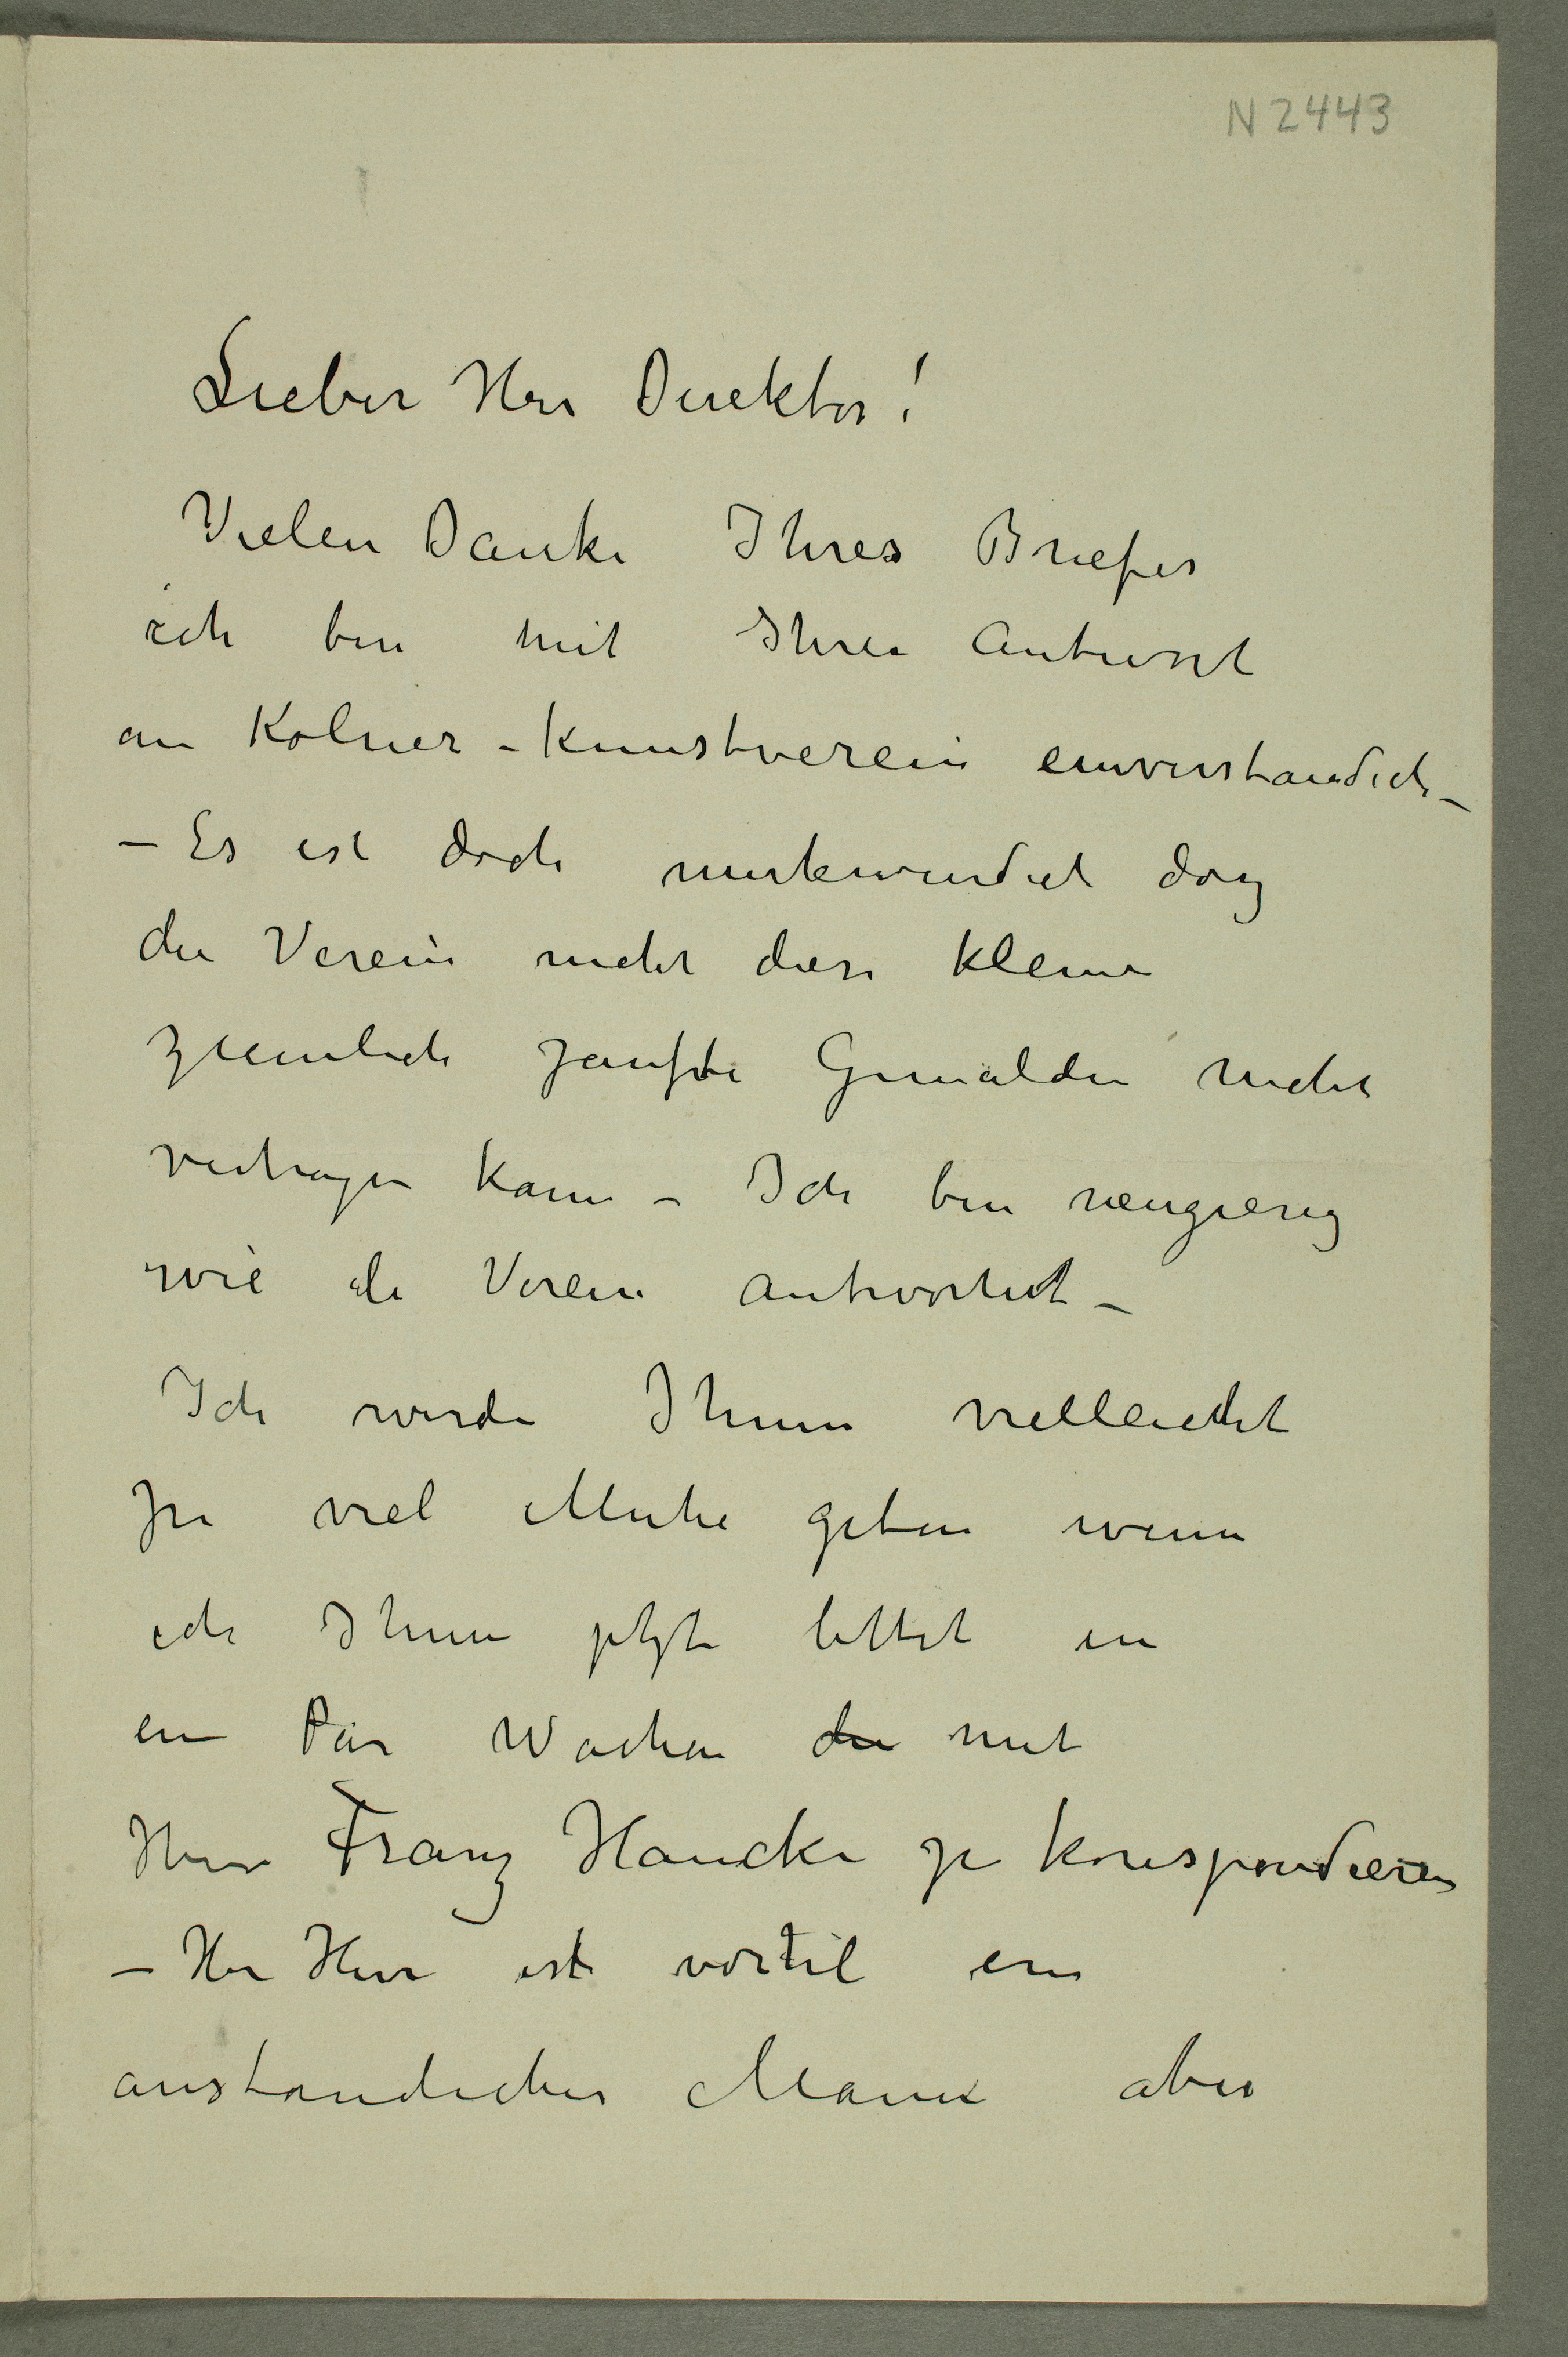 N 2443
Lieber Herr Direktor!
Vielen Danke Ihres Briefes
ich bin mit Ihrer Antwort
an Kölner-Kunstverein einverstandich –
– Es ist doch merkwurdich dasz
der Verein nicht diese kleine
ziemlich zanfte Gemälden nicht
vertragen kann – Ich bin neugierig
wie de Verein antwortet –
Ich werde Ihnen vielleicht
zu viel Muhe geben wenn
ich Ihnen jetzt bittet in
ein Par Wochen die mit
Herrn Franz Haucke zu korrespondieren
– Her Herr ist vorteil ein
anstandicher Mann aber